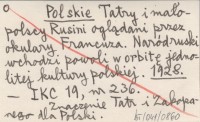 Polskie Tatry i mało-
polscy Rusini oglądani przez
okulary Francuza. Naród ruski
wchodzi powoli w orbitę jedno-
litej kultury polskiej. 1928.
— IKC 19, nr 236.
Znaczenie Tatr i Zakopa-
nego dla Polski.